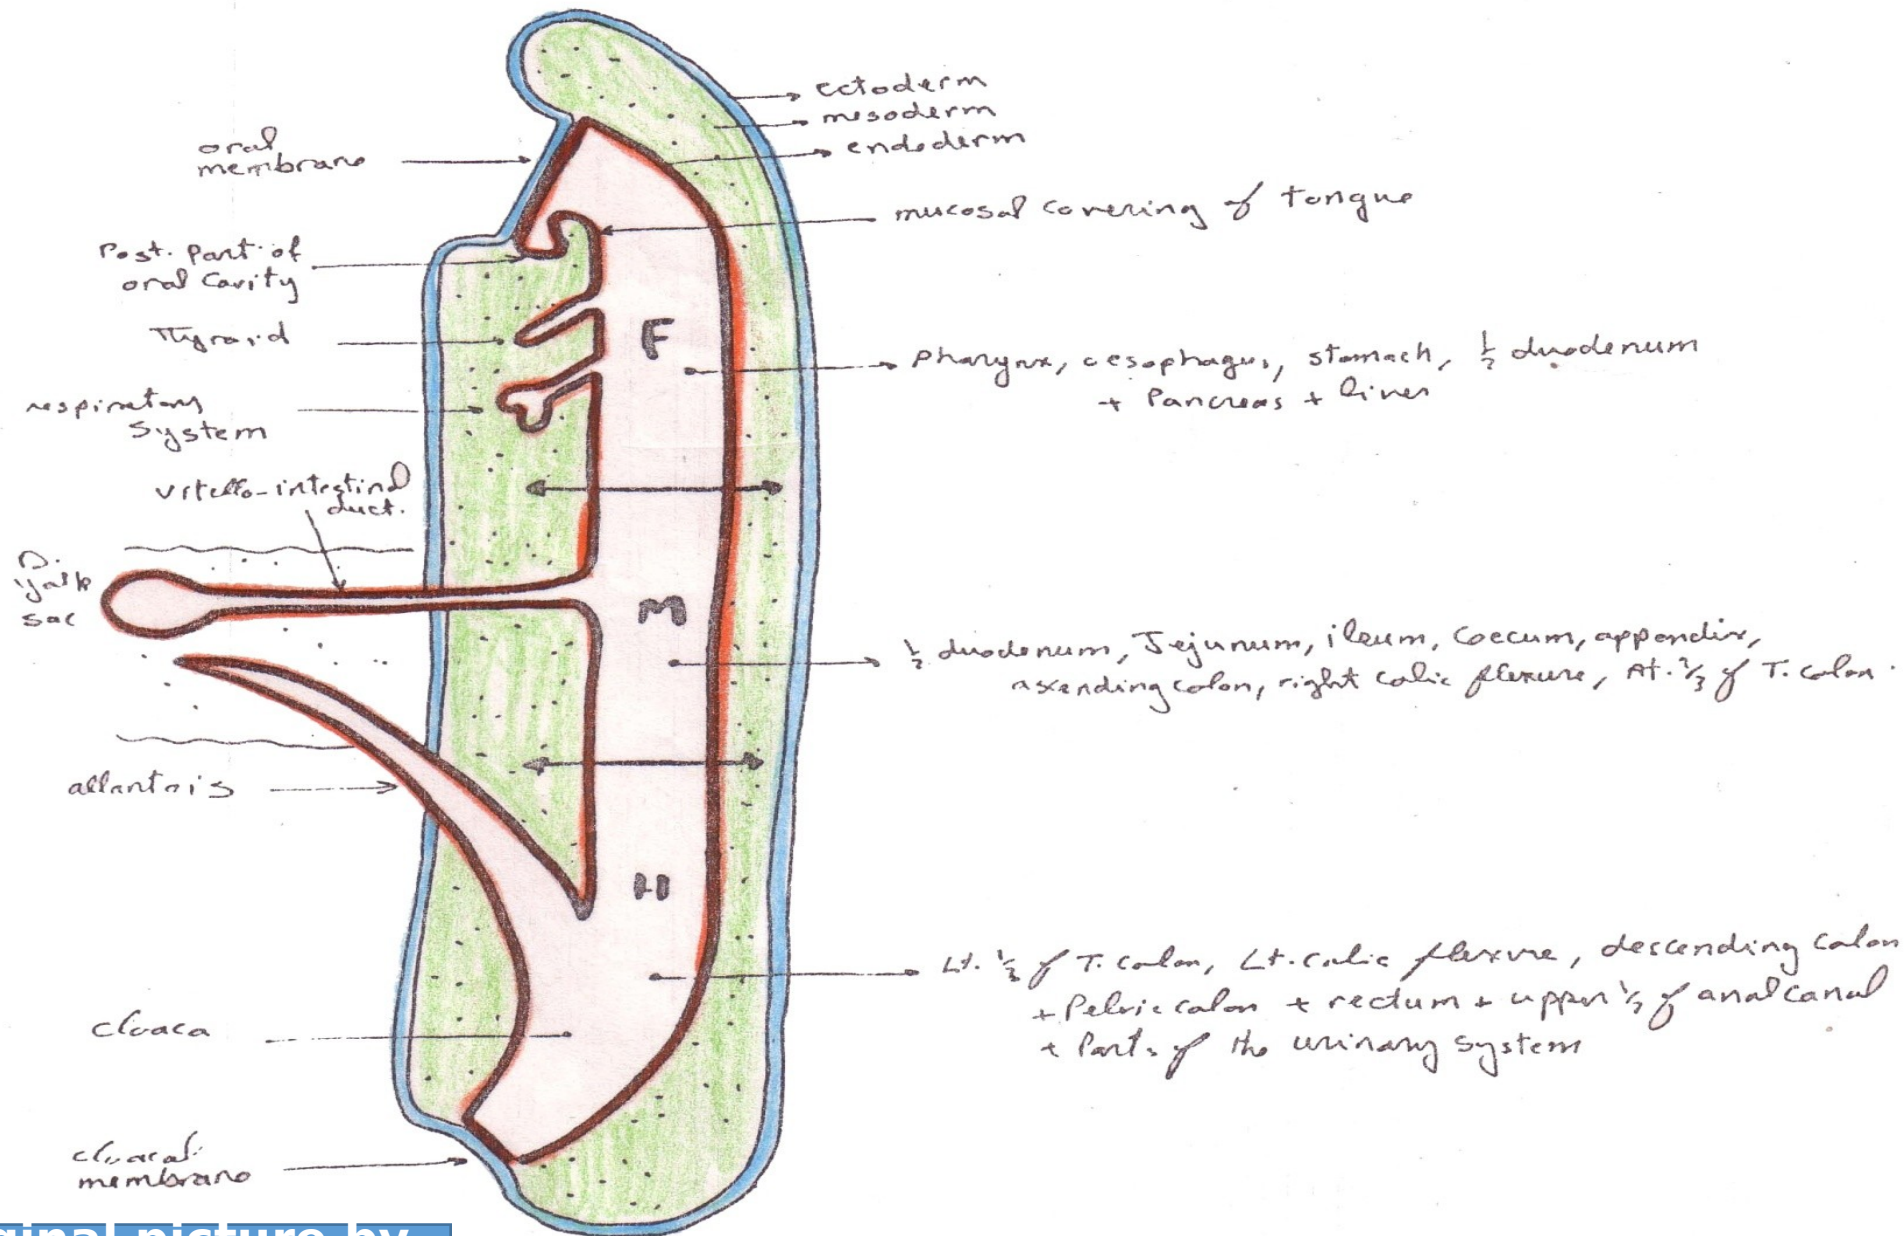 ectoderm
mesoderm
endoderm
oral
membrane
mucosal covering of tongue
Post. part of
oral cavity
Thyroid
F
Pharynx, oesophagus, stomach, ½ duodenum
+ Pancreas + liver
respiratory
system
vitello-intestinal
duct.
D.
yolk
sac
M
½ duodenum, Jejunum, ileum, coecum, appendix,
ascending colon, right colic flexure, ⅔ of T. colon.
allantois
H
Lt. ⅓ of T. colon, Lt. colic flexure, descending colon
+ Pelvic colon + rectum + upper of anal canal
+ Parts of the urinary system
cloaca
cloacal
membrane
picture by